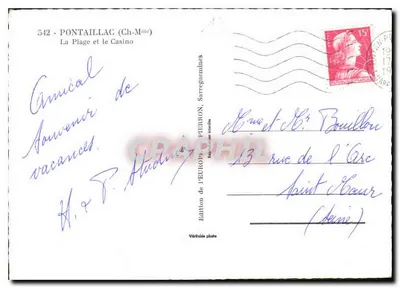 542 - PONTAILLAC (Ch-Mme)
La Plage et le Casino
Amical
souvenir de
vacances.
H. & P.
Edition de l'EUROPE - PIERRON, Sarreguemines
Véritable photo
15F
Mme et Mr Bouillon
13 rue de l'Arc
Saint Maur
(Seine)